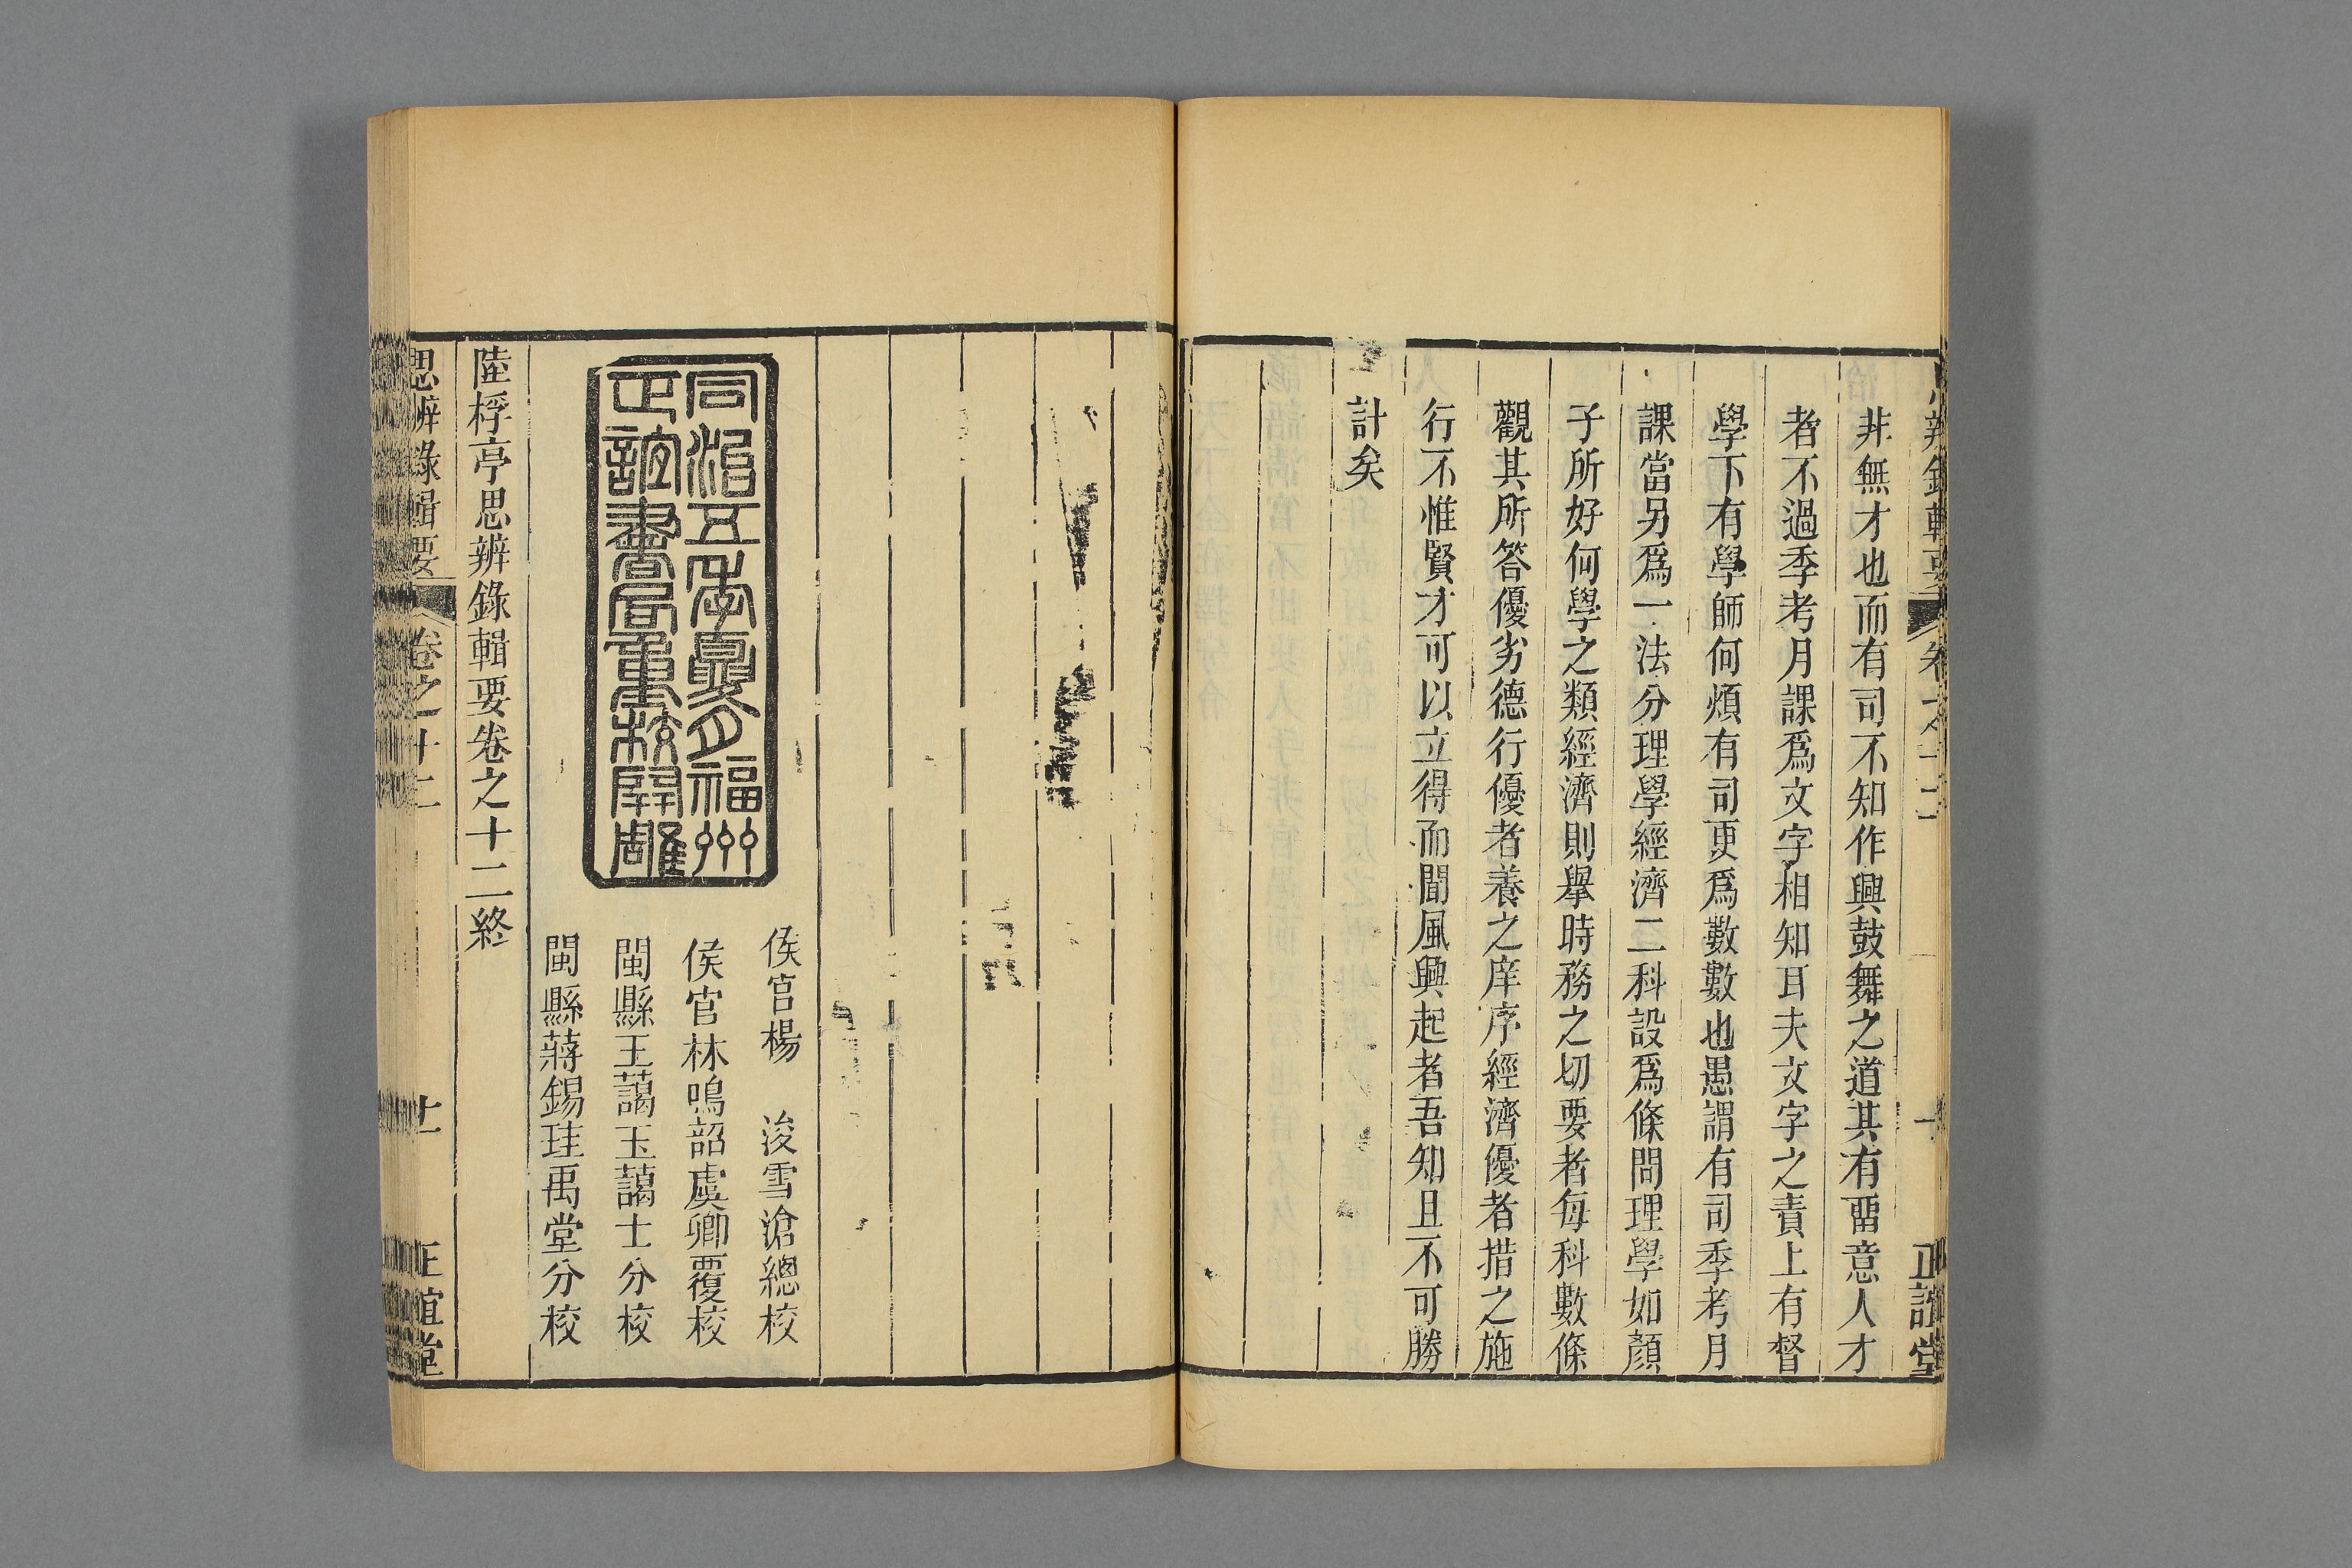 非無才也而有司不知作興鼓舞之道其有畱意人才
者不過季考月課爲文字相知耳夫文字之責上有督
學下有學師何煩有司更爲數數也愚謂有司季考月
課當另爲一法分理學經濟二科設爲條問理學如顏
子所好何學之類經濟則舉時務之切要者每科數條
觀其所答優劣德行優者養之庠序經濟優者措之施
行不惟賢才可以立得而聞風興起者吾知且不可勝
計矣
同治五年夏月福州
正誼書局重校開雕
侯官楊 浚雪滄總校
侯官林鳴韶虞卿覆校
閩縣王藹玉藹士分校
閩縣蔣錫珪禹堂分校
陸桴亭思辨錄輯要卷之十二終
思辨錄輯要 卷之十二 十一 正誼堂